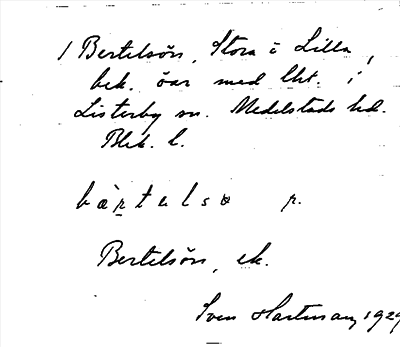 / Bertelsön, Stora o Lilla,
bek. öar med lht. i
Listerby sn. Medelstads hd.
Blek. l.
bæ̀ṛtelsø p.
Bertelsön, ek.
Sven Hartman, 1929